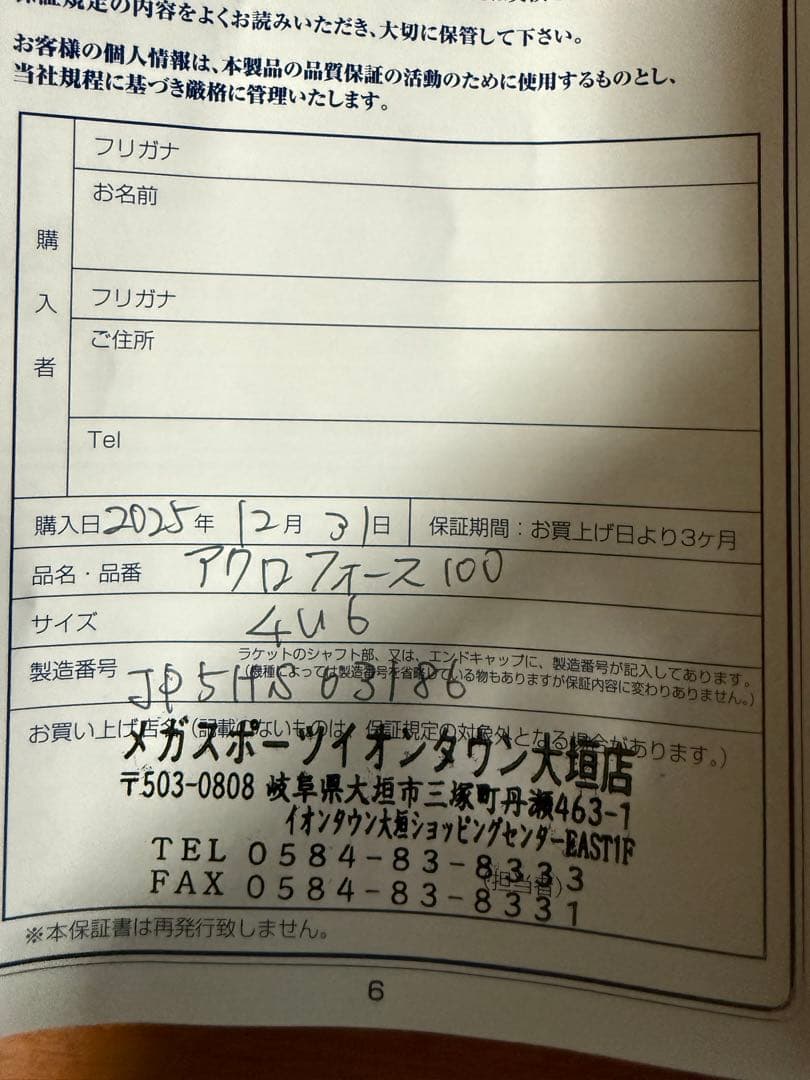 保証規定の内容をよくお読みいただき、大切に保管して下さい。
お客様の個人情報は、本製品の品質保証の活動のために使用するものとし、
当社規程に基づき厳格に管理いたします。
購入者
フリガナ
お名前
フリガナ
ご住所
Tel
購入日 2025年 12月 31日 保証期間：お買上げ日より3ヶ月
品名・品番 アクロフォース100
サイズ 4U6
製造番号
ラケットのシャフト部、又は、エンドキャップに、製造番号が記入してあります。
(機種によっては製造番号を省略している物もありますが保証内容に変わりありません。)
お買い上げ店名(記載のないものは、保証規定の対象外となる場合があります。)
メガスポーツイオンタウン大垣店
〒503-0808 岐阜県大垣市三塚町丹瀬463-1
イオンタウン大垣ショッピングセンターEAST1F
TEL 0584-83-8333
(担当者)
FAX 0584-83-8331
※本保証書は再発行致しません。
6